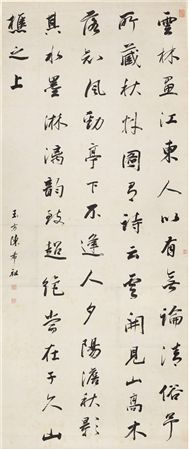 雲林畫江東人以有無論清俗予
所藏秋林圖有詩云雲開見山高木
落知風勁亭下不逢人夕陽澹秋影
其水墨淋漓韻致超絕當在子久山
樵之上
玉方陳希祖